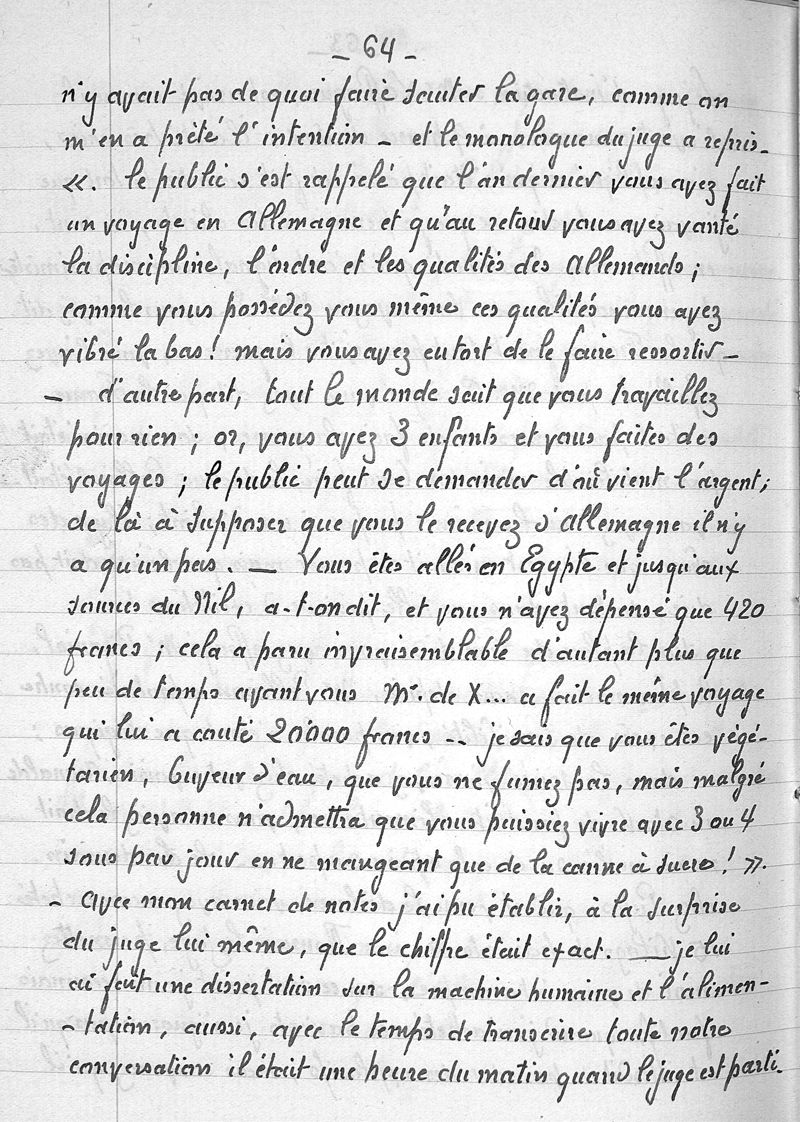 - 64 -
n'y avait pas de quoi faire sauter la gare, comme on
m'en a prêté l'intention - et le monologue du juge a repris -
«. le public s'est rappelé que l'an dernier vous avez fait
un voyage en Allemagne et qu'au retour vous avez vanté
la discipline, l'ordre et les qualités des Allemands ;
comme vous possédez vous même ces qualités vous avez
vibré la bas ! mais vous avez eu tort de le faire ressortir -
- d'autre part, tout le monde sait que vous travaillez
pour rien ; or, vous avez 3 enfants et vous faites des
voyages ; le public peut se demander d'où vient l'argent ;
de là à supposer que vous le recevez d'Allemagne il n'y
a qu'un pas. — Vous êtes allés en Egypte et jusqu'aux
sources du Nil, a-t-on dit, et vous n'avez dépensé que 420
francs ; cela a paru invraisemblable d'autant plus que
peu de temps avant vous Mr. de X... a fait le même voyage
qui lui a couté 20000 francs -- je sais que vous êtes végé-
tarien, buveur d'eau, que vous ne fumez pas, mais malgré
cela personne n'admettra que vous puissiez vivre avec 3 ou 4
sous par jour en ne mangeant que de la canne à sucre ! ».
- Avec mon carnet de notes j'ai pu établir, à la surprise
du juge lui même, que le chiffre était exact. — je lui
ai fait une dissertation sur la machine humaine et l'alimen-
-tation, aussi, avec le temps de transcrire toute notre
conversation il était une heure du matin quand le juge est parti.